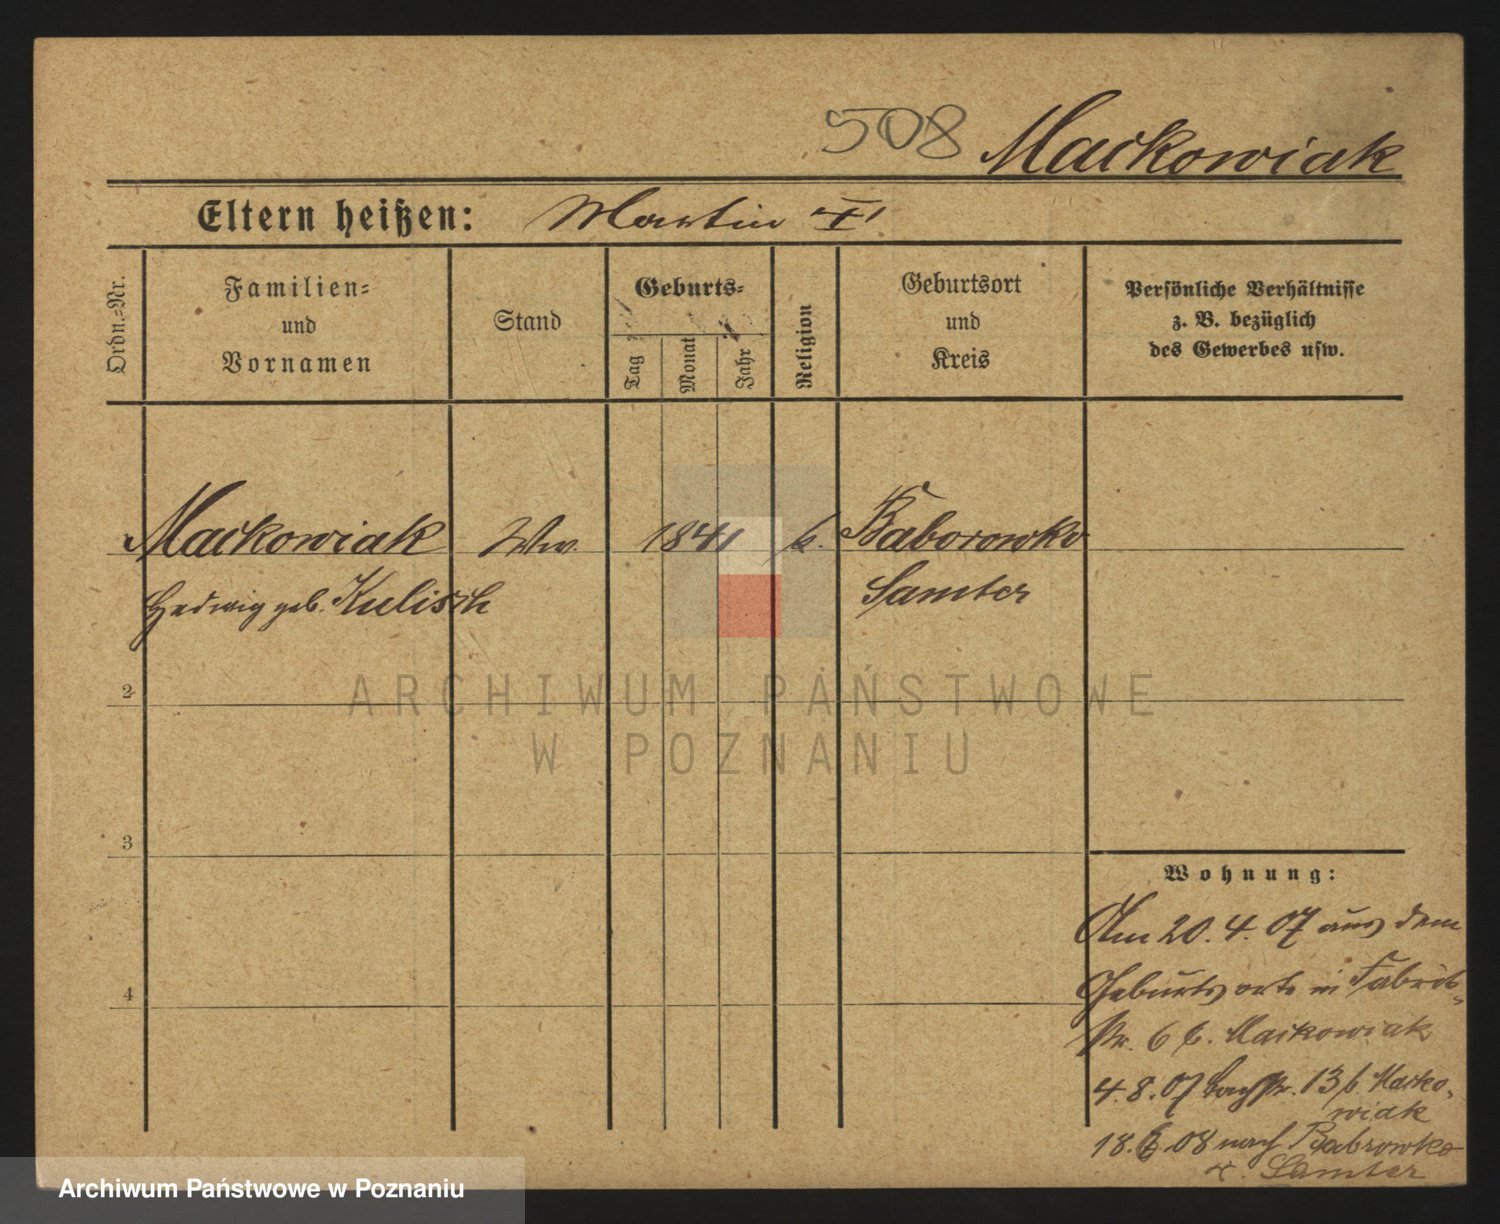 508 Maćkowiak
Eltern heißen: Martin
Ordn.-Nr.
Familien-
und
Vornamen
Stand
Geburts-
Tag
Monat
Jahr
Religion
Geburtsort
und
Kreis
Persönliche Verhältnisse
z. B. bezüglich
des Gewerbes usw.
Maćkowiak Ww. 1841 k. Baborowko
Hedwig geb. Kulisch Samter
2
3
4
Wohnung:
Am 20. 4. 07 aus dem
Geburtsorte in Fabrik-
str. 6 b. Maćkowiak
4. 8. 07 Bachstr. 13 b. Maćko-
wiak
18. 6. 08 nach Babrowko
Samter
ARCHIWUM PAŃSTWOWE
W POZNANIU
Archiwum Państwowe w Poznaniu